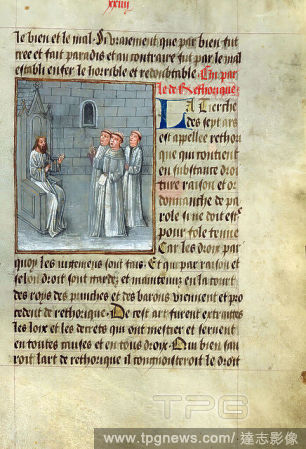 xxiiii
le bien et le mal. Vraiement que par bien fut
cree et fait paradis et au contraire fut par le mal
establi enfer le horrible et redoubtable. Cy par
le de Rethorique
La tierche
des sept ars
est appellee rethor
ique qui contient
en substance droi
ture raison et or
donnanche de pa
role si ne doit estre
pour fole tenue
Car les droix par
quoy les iugemens sont fais. Et qui par raison et
selon droit sont gardez et maintenuz en la court
des roys des prinches et des barons viennent et pro
cedent de rethorique. De cest art furent extraittes
les loix et les decretz qui ont mestier et servent
en toutes causes et en tous droix. Qui bien sau
roit lart de rethorique il congnoisteroit le droit
TPG
www.tpgnews.com/達志影像